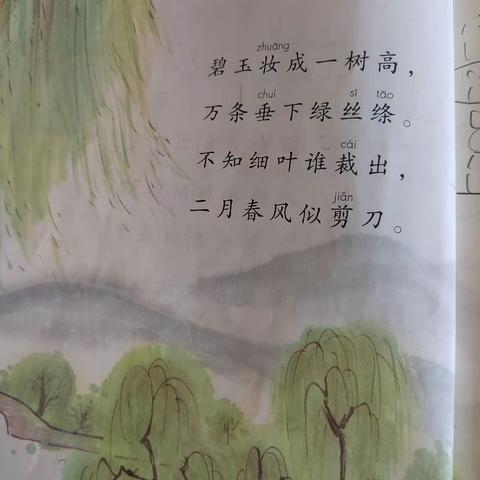 zhuāng
碧玉妆成一树高，
chuí sī tāo
万条垂下绿丝绦。
cái
不知细叶谁裁出，
jiǎn
二月春风似剪刀。